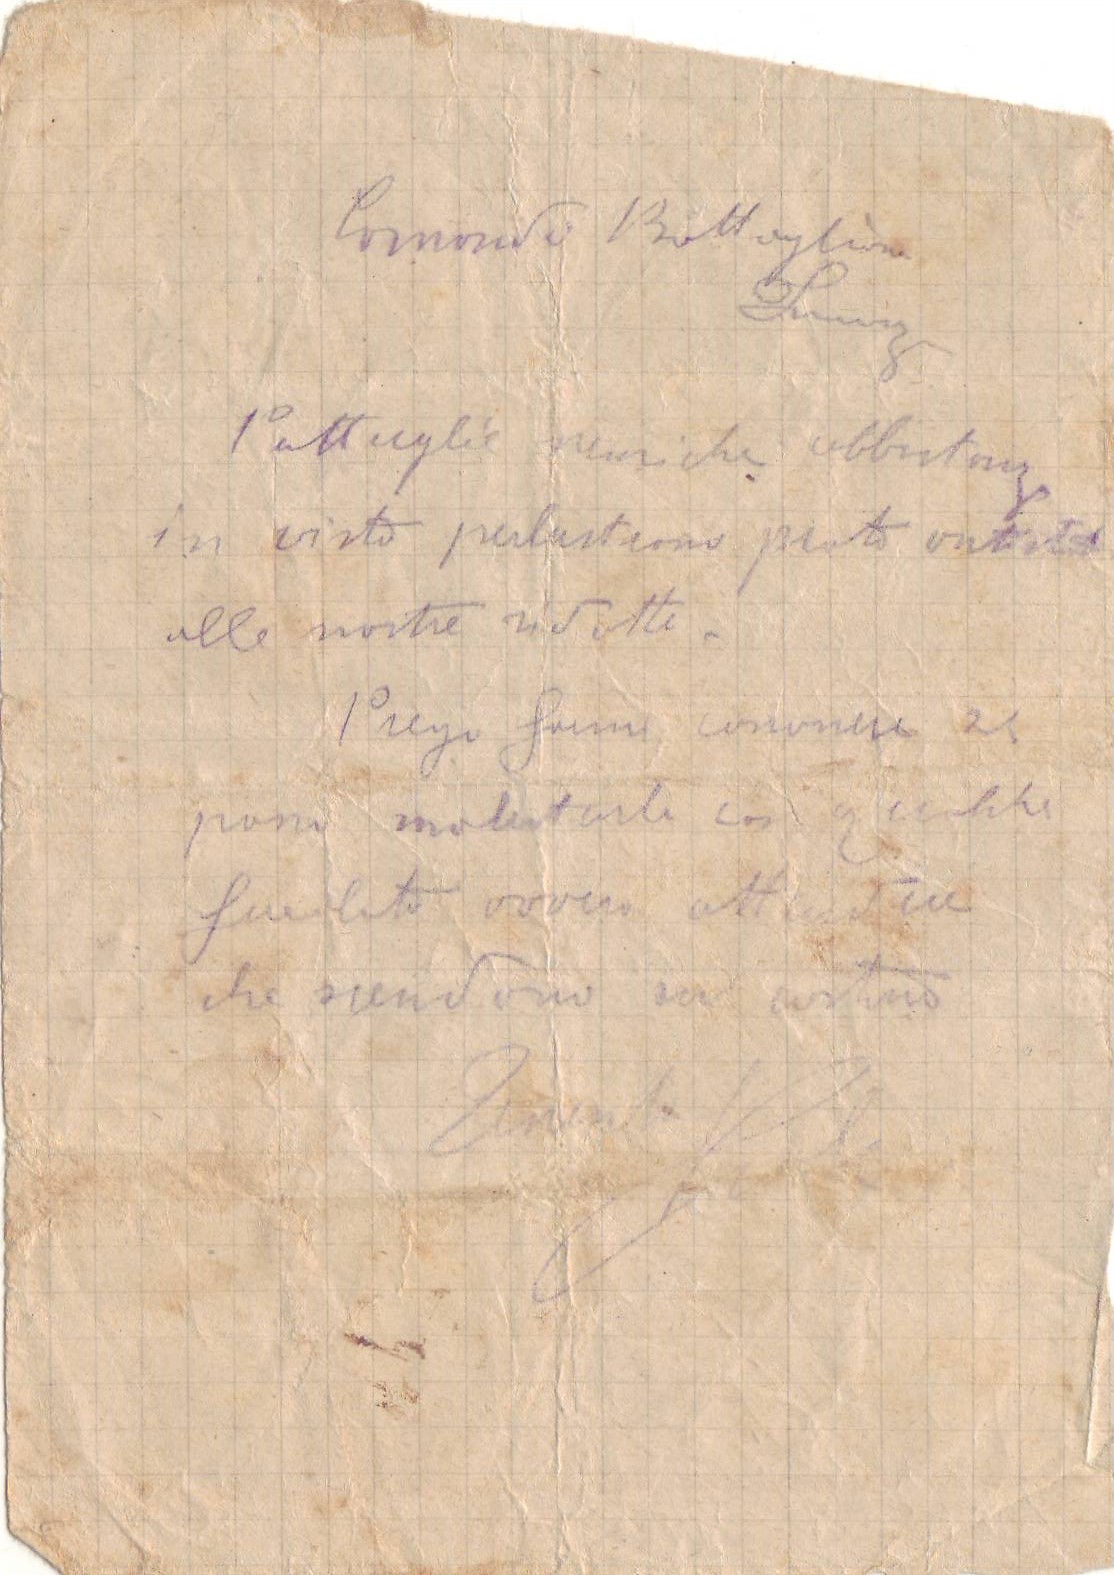 Comando Battaglione
Pattuglie nemiche abbastanz
in vista perlustrano prato
alle nostre ridotte.
Prego farmi conoscere se
posso molestarle con qualche
fucilata ovvero attendere
che scendono sui
Tenente